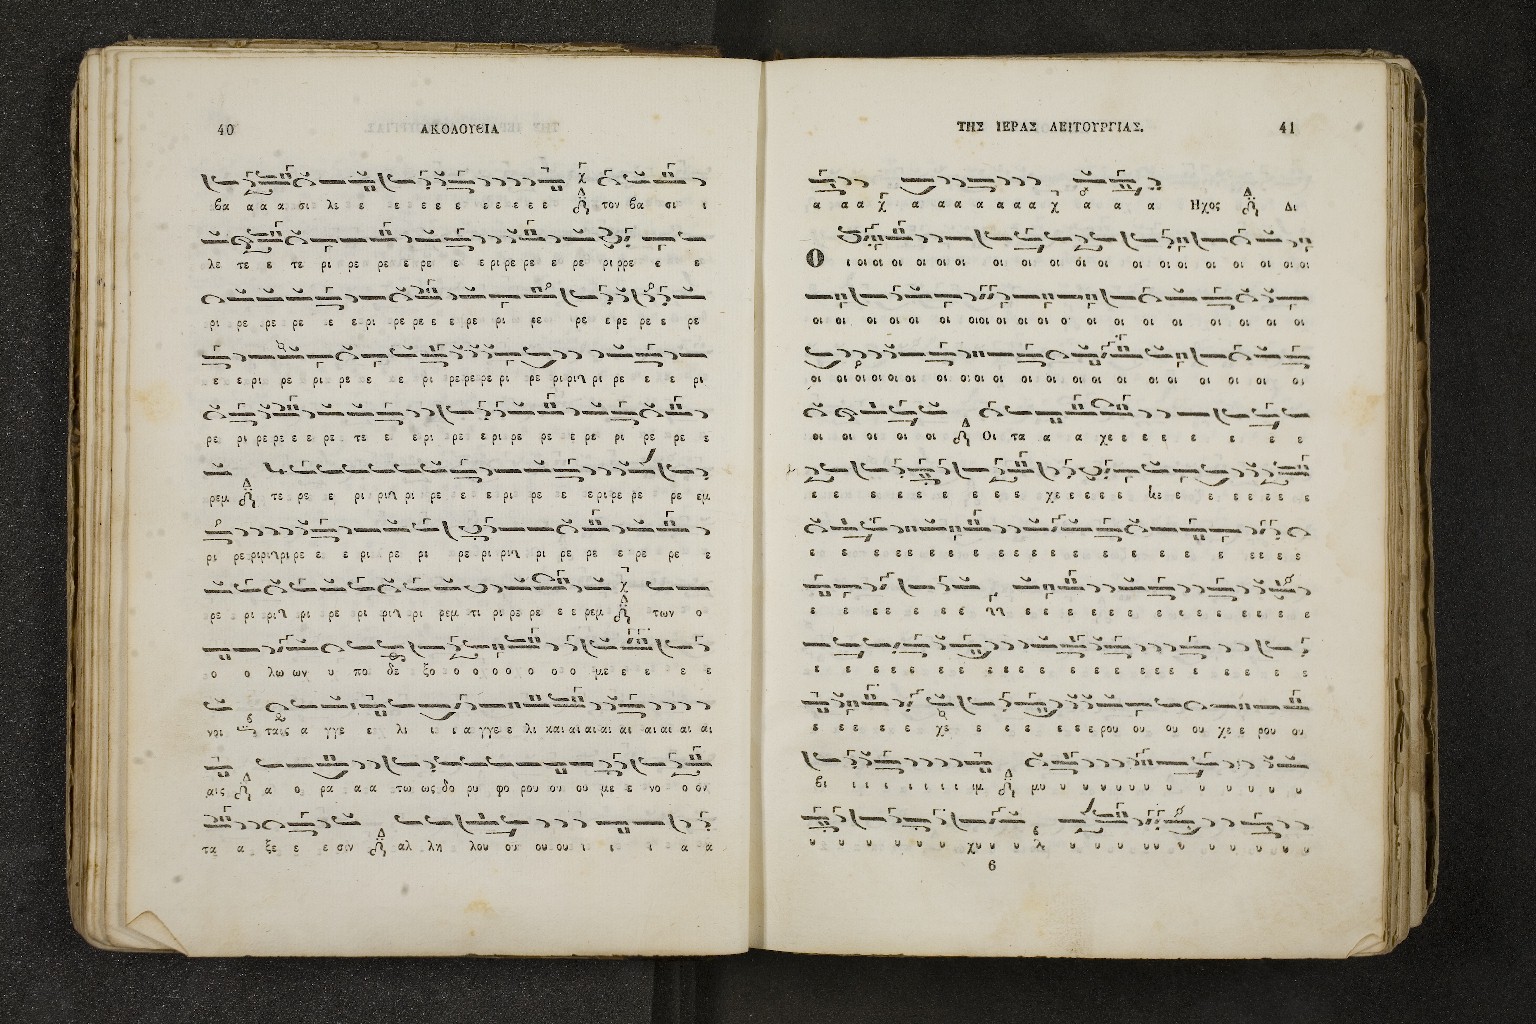 40 ΑΚΟΛΟΥΘΙΑ
βα α α α σι λε ε ε ε ε ε ε ε ε ε ε τον βα σι ι
λε τε ε τε ρι ρε ρε ε ρε ε ε ρι ρε ρε ε ρε ρι ρρε ε ε
ρι ρε ρε ρε ε ε ρι ρε ρε ε ε ρε ρι ρε ρε ε ρε ρε ε ρε
ε ε ρι ρε ρι ρε ε ε ρι ρε ρε ρε ρι ρε ρι ρι ρι ρε ε ε ρι
ρε ρι ρε ρε ε ε ρε τε ε ε ρι ρε ε ρι ρε ρε ε ρε ρι ρε ρε ε
ρεμ τε ρε ε ρι ρι ρι ρε ε ε ρι ρε ε ε ρι ρε ρε ρε εμ
ρι ρε ρι ρι ρι ρε ε ε ρι ρε ρι ρε ρι ρι ρι ρε ρε ε ρε ρε ε
ρε ρι ρι ρι ρε ρι ρι ρι ρεμ τι ρι ρε ρε ε ε ρεμ των ο
ο ο λω ων υ πο δε ξο ο ο ο ο ο ο ο με ε ε ε ε
νοι ταις α γγε ε λι ι ι α γγε ε λι και αι αι αι αι αι αι αι αι
αις α ο ρα α α τω ως δο ρυ φο ρου ου ου με ε νο ο ον
τα α ξε ε ε σιν αλ λη λου ου ου ου ι ι ι α α
ΤΗΣ ΙΕΡΑΣ ΛΕΙΤΟΥΡΓΙΑΣ. 41
α α α χ α α α α α α α χ α α α Ηχος Δι
Ο ι οι οι οι οι οι οι οι οι οι οι οι οι οι οι οι οι οι οι
οι οι οι οι οι οι οι οι οι οι οι οι οι οι οι οι οι οι
οι οι οι οι οι οι οι οι οι οι οι οι οι οι οι οι οι οι οι οι
οι οι οι οι οι Οι τα α α χε ε ε ε ε ε ε ε
ε ε ε ε ε ε ε ε ε χε ε ε ε ε ε ε ε ε ε ε ε
ε ε ε ε ε ε ε ε ε ε ε ε ε ε ε ε ε ε ε ε ε ε
ε ε ε ε ε ε ε ε ε ε ε ε ε ε ε ε ε ε ε ε
ε ε ε ε ε ε ε ε ε ε ε ε ε ε ε ε ε ε ε ε ε
ε ε ε ε ε χε ε ε ε ε ε ε ρου ου ου ου χε ε ρου ου
βι ι ι ι ι ι ι ι ιμ μυ υ υ υ υ υ υ υ υ υ υ υ υ υ
υ υ υ υ υ υ χυ υ υ υ υ υ υ υ υ υ υ υ υ υ
6